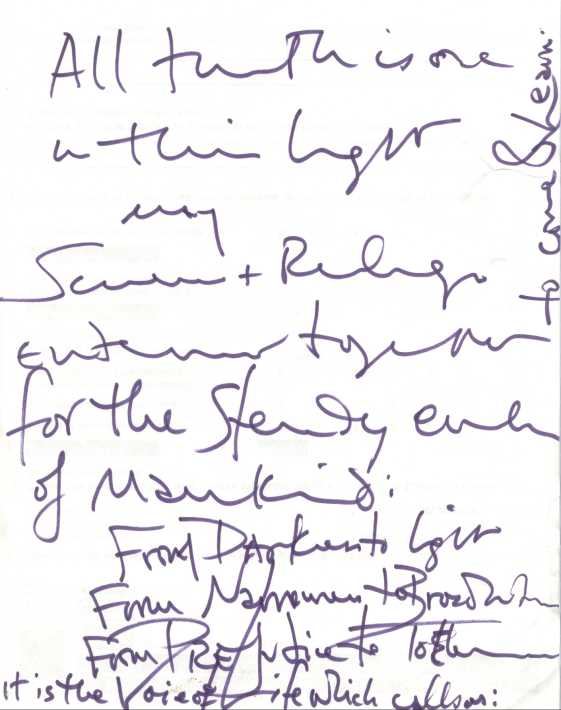 All truth is one
in this light
may
Science + Religion
endeavor together
for the Steady evolu
of Mankind:
From Darkness to light
From Narrowness to Broadmindedn
From PREjudice to Tolerance
it is the Voice of Life which calls us:
to come & Learn.